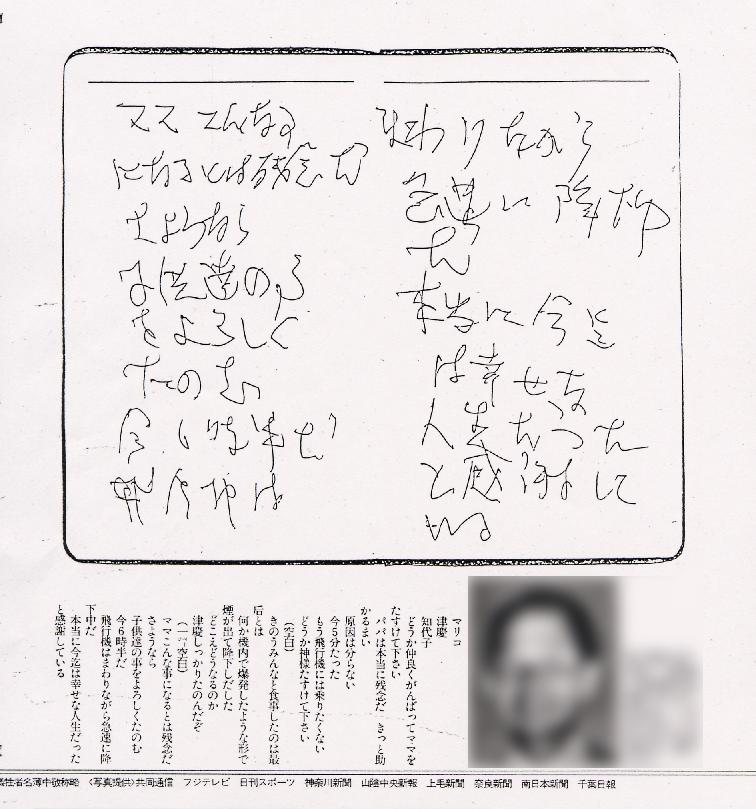 ママ こんな事
になるとは残念だ
さようなら
子供達の事
をよろしく
たのむ
今6時半だ
飛行機は
まわりながら
急速に降下中
だ
本当に今迄
は幸せな
人生だった
と感謝して
いる
マリコ
津慶
知代子
どうか仲良くがんばってママを
たすけて下さい
パパは本当に残念だ きっと助
かるまい
原因は分らない
今5分たった
もう飛行機には乗りたくない
どうか神様たすけて下さい
(空白)
きのうみんなと食事したのは最
后とは
何か機内で爆発したような形で
煙が出て降下しだした
どこえどうなるのか
津慶しっかりたのんだぞ
(一㌻空白)
ママこんな事になるとは残念だ
さようなら
子供達の事をよろしくたのむ
今6時半だ
飛行機はまわりながら急速に降
下中だ
本当に今迄は幸せな人生だった
と感謝している
犠牲者名簿中敬称略 〈写真提供〉共同通信 フジテレビ 日刊スポーツ 神奈川新聞 山陰中央新報 上毛新聞 奈良新聞 南日本新聞 千葉日報